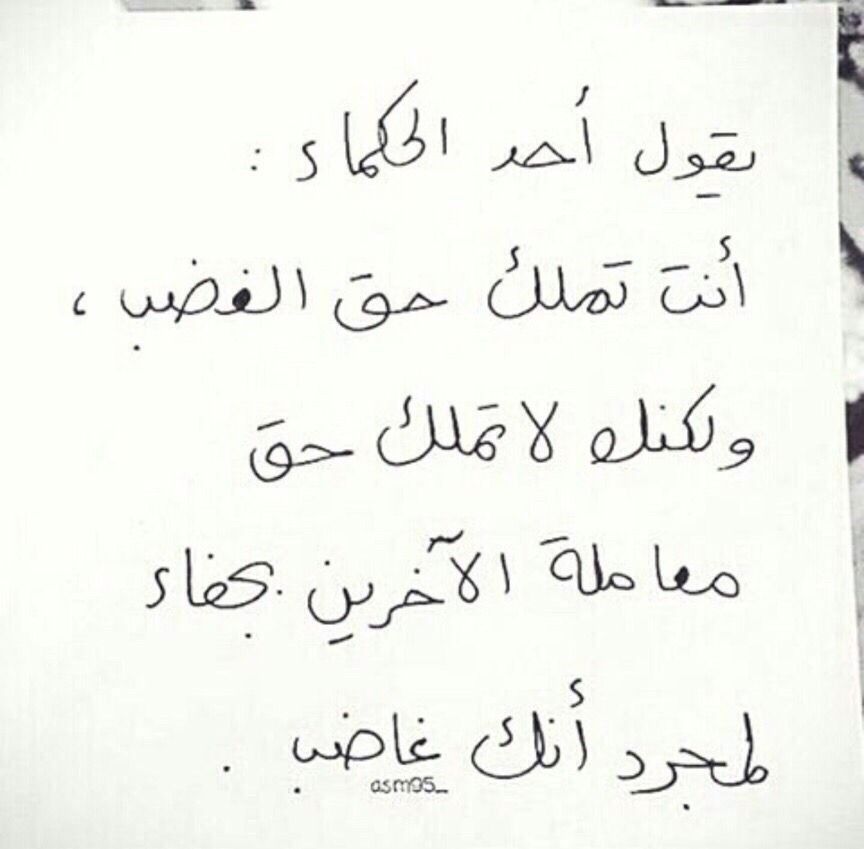 يقول أحد الحكماء :
أنت تملك حق الغضب ،
ولكنك لا تملك حق
معاملة الآخرين بجفاء
لمجرد أنك غاضب .
asm95_